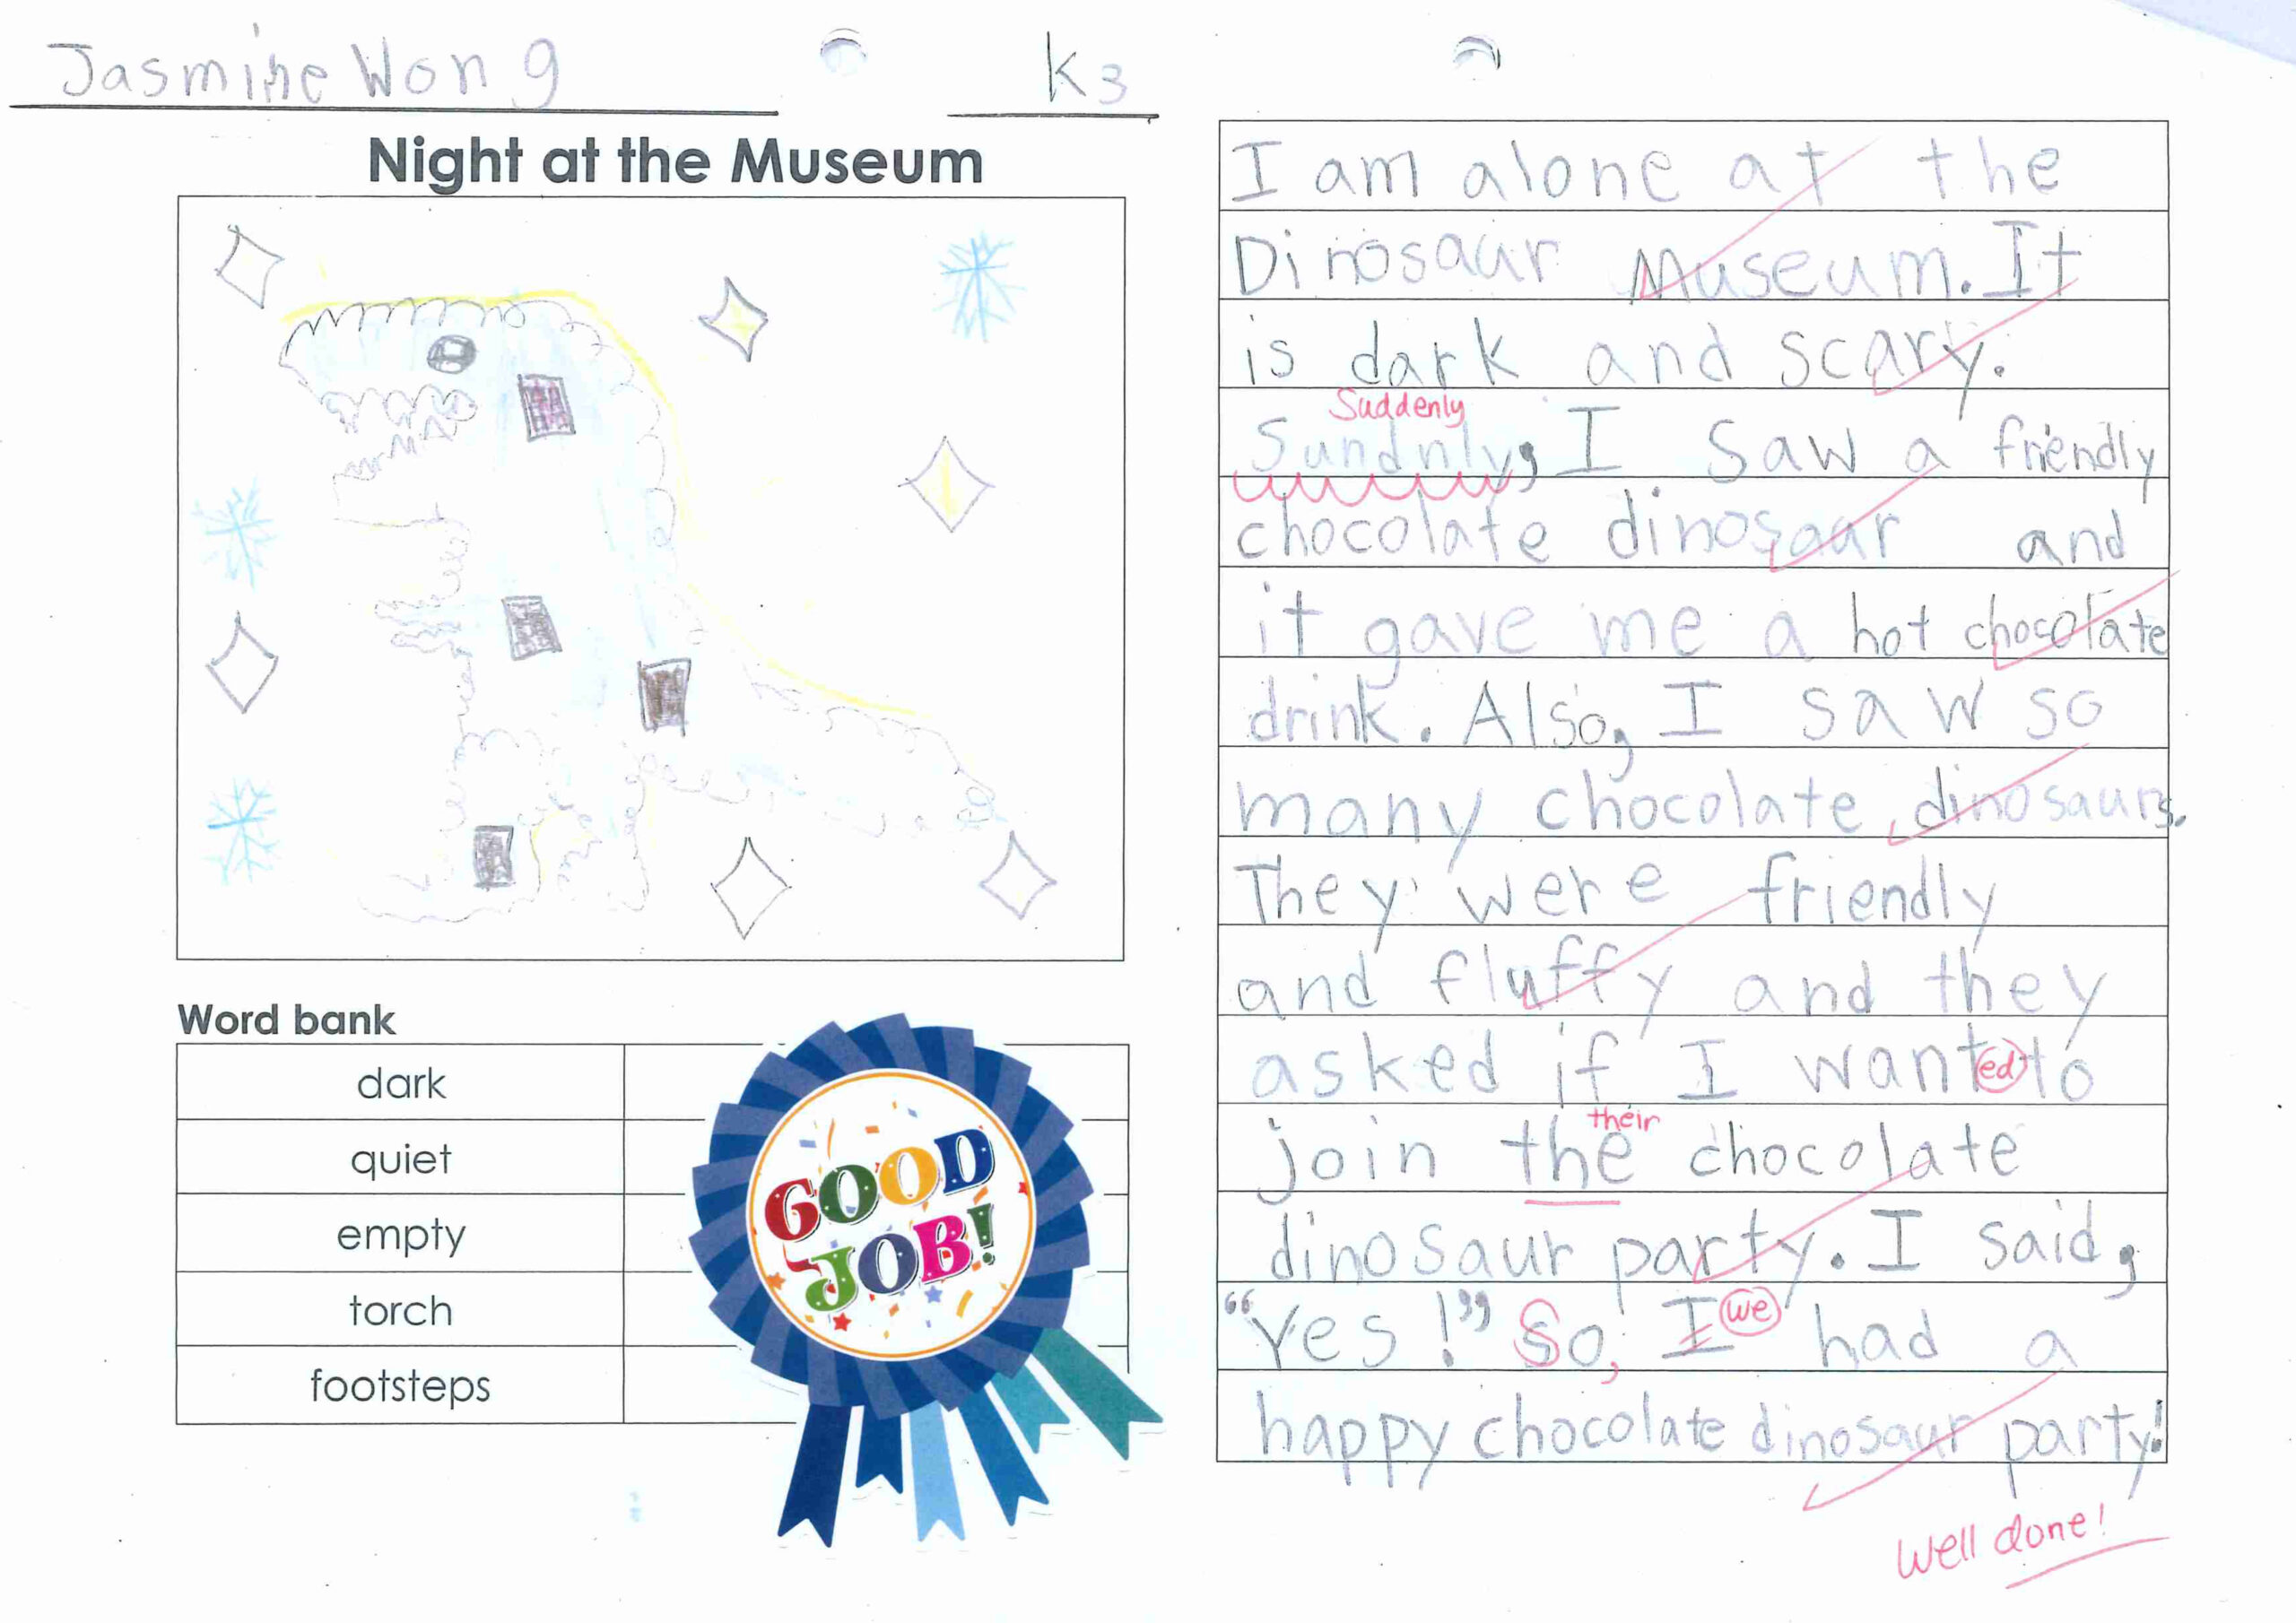 Jasmine Wong K3
Night at the Museum
Word bank
dark
quiet
empty
torch
footsteps
GOOD
JOB!
I am alone at the
Dinosaur Museum. It
is dark and scary.
Suddenly
Sundnly, I saw a friendly
chocolate dinosaur and
it gave me a hot chocolate
drink. Also, I saw so
many chocolate dinosaurs.
They were friendly
and fluffy and they
asked if I wanted to
their
join the chocolate
dinosaur party. I said,
"Yes!" So, I we had a
happy chocolate dinosaur party!
Well done!